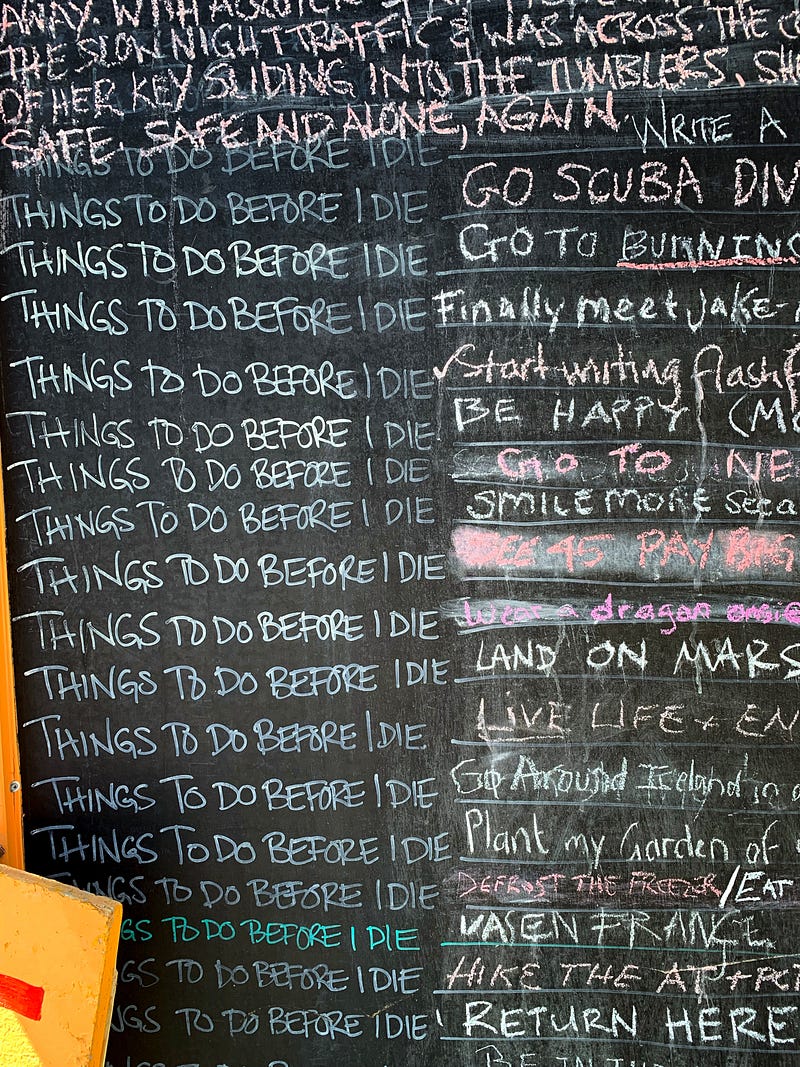 AWAY WITH ABSOLUTE
THE SLOW NIGHT TRAFFIC & WAS ACROSS. THE
OF HER KEY SLIDING INTO THE TUMBLERS, SH
SAFE. SAFE AND ALONE, AGAIN.
THINGS TO DO BEFORE I DIE WRITE A
THINGS TO DO BEFORE I DIE GO SCUBA DIV
THINGS TO DO BEFORE I DIE GO TO BURNING
THINGS TO DO BEFORE I DIE Finally meet Jake-
THINGS TO DO BEFORE I DIE ✓Start writing flash f
THINGS TO DO BEFORE I DIE BE HAPPY (MO
THINGS TO DO BEFORE I DIE GO TO NE
THINGS TO DO BEFORE I DIE SMILE MORE
THINGS TO DO BEFORE I DIE SEE 45 PAY
THINGS TO DO BEFORE I DIE Wear a dragon onsie
THINGS TO DO BEFORE I DIE LAND ON MARS
THINGS TO DO BEFORE I DIE LIVE LIFE + EN
THINGS TO DO BEFORE I DIE Go Around Iceland in a
THINGS TO DO BEFORE I DIE Plant my Garden of
THINGS TO DO BEFORE I DIE DEFROST THE FREEZER/EAT
GS TO DO BEFORE I DIE FRANCE
GS TO DO BEFORE I DIE HIKE THE AT + PC
NGS TO DO BEFORE I DIE ! RETURN HERE
BE IN